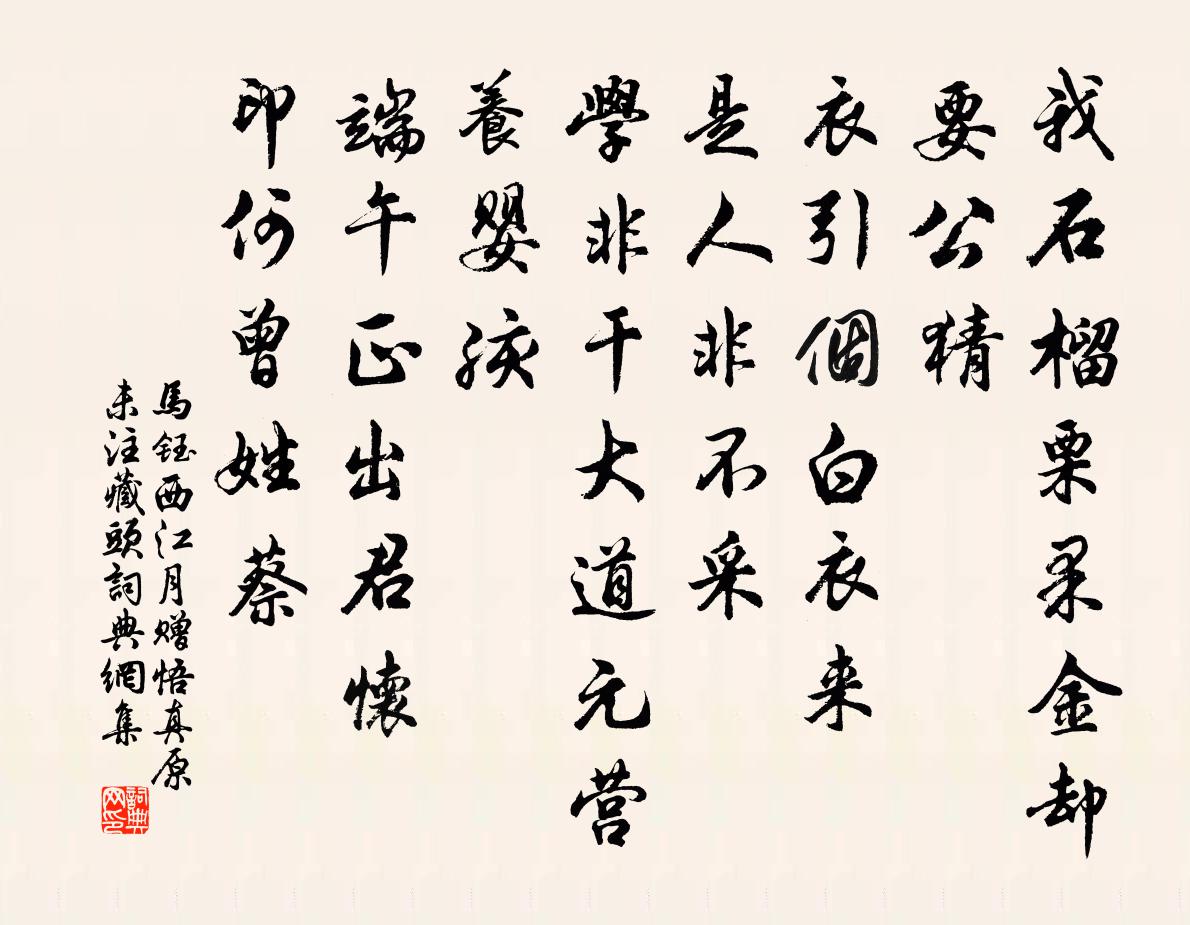 我石榴栗果金却
要公猜
衣引個白衣来
是人非不采
學非干大道元营
養嬰孩
端午正出君懷
印何曾姓蔡
馬鈺西江月赠悟真原
未注藏頭詞典網集
詞典
网印